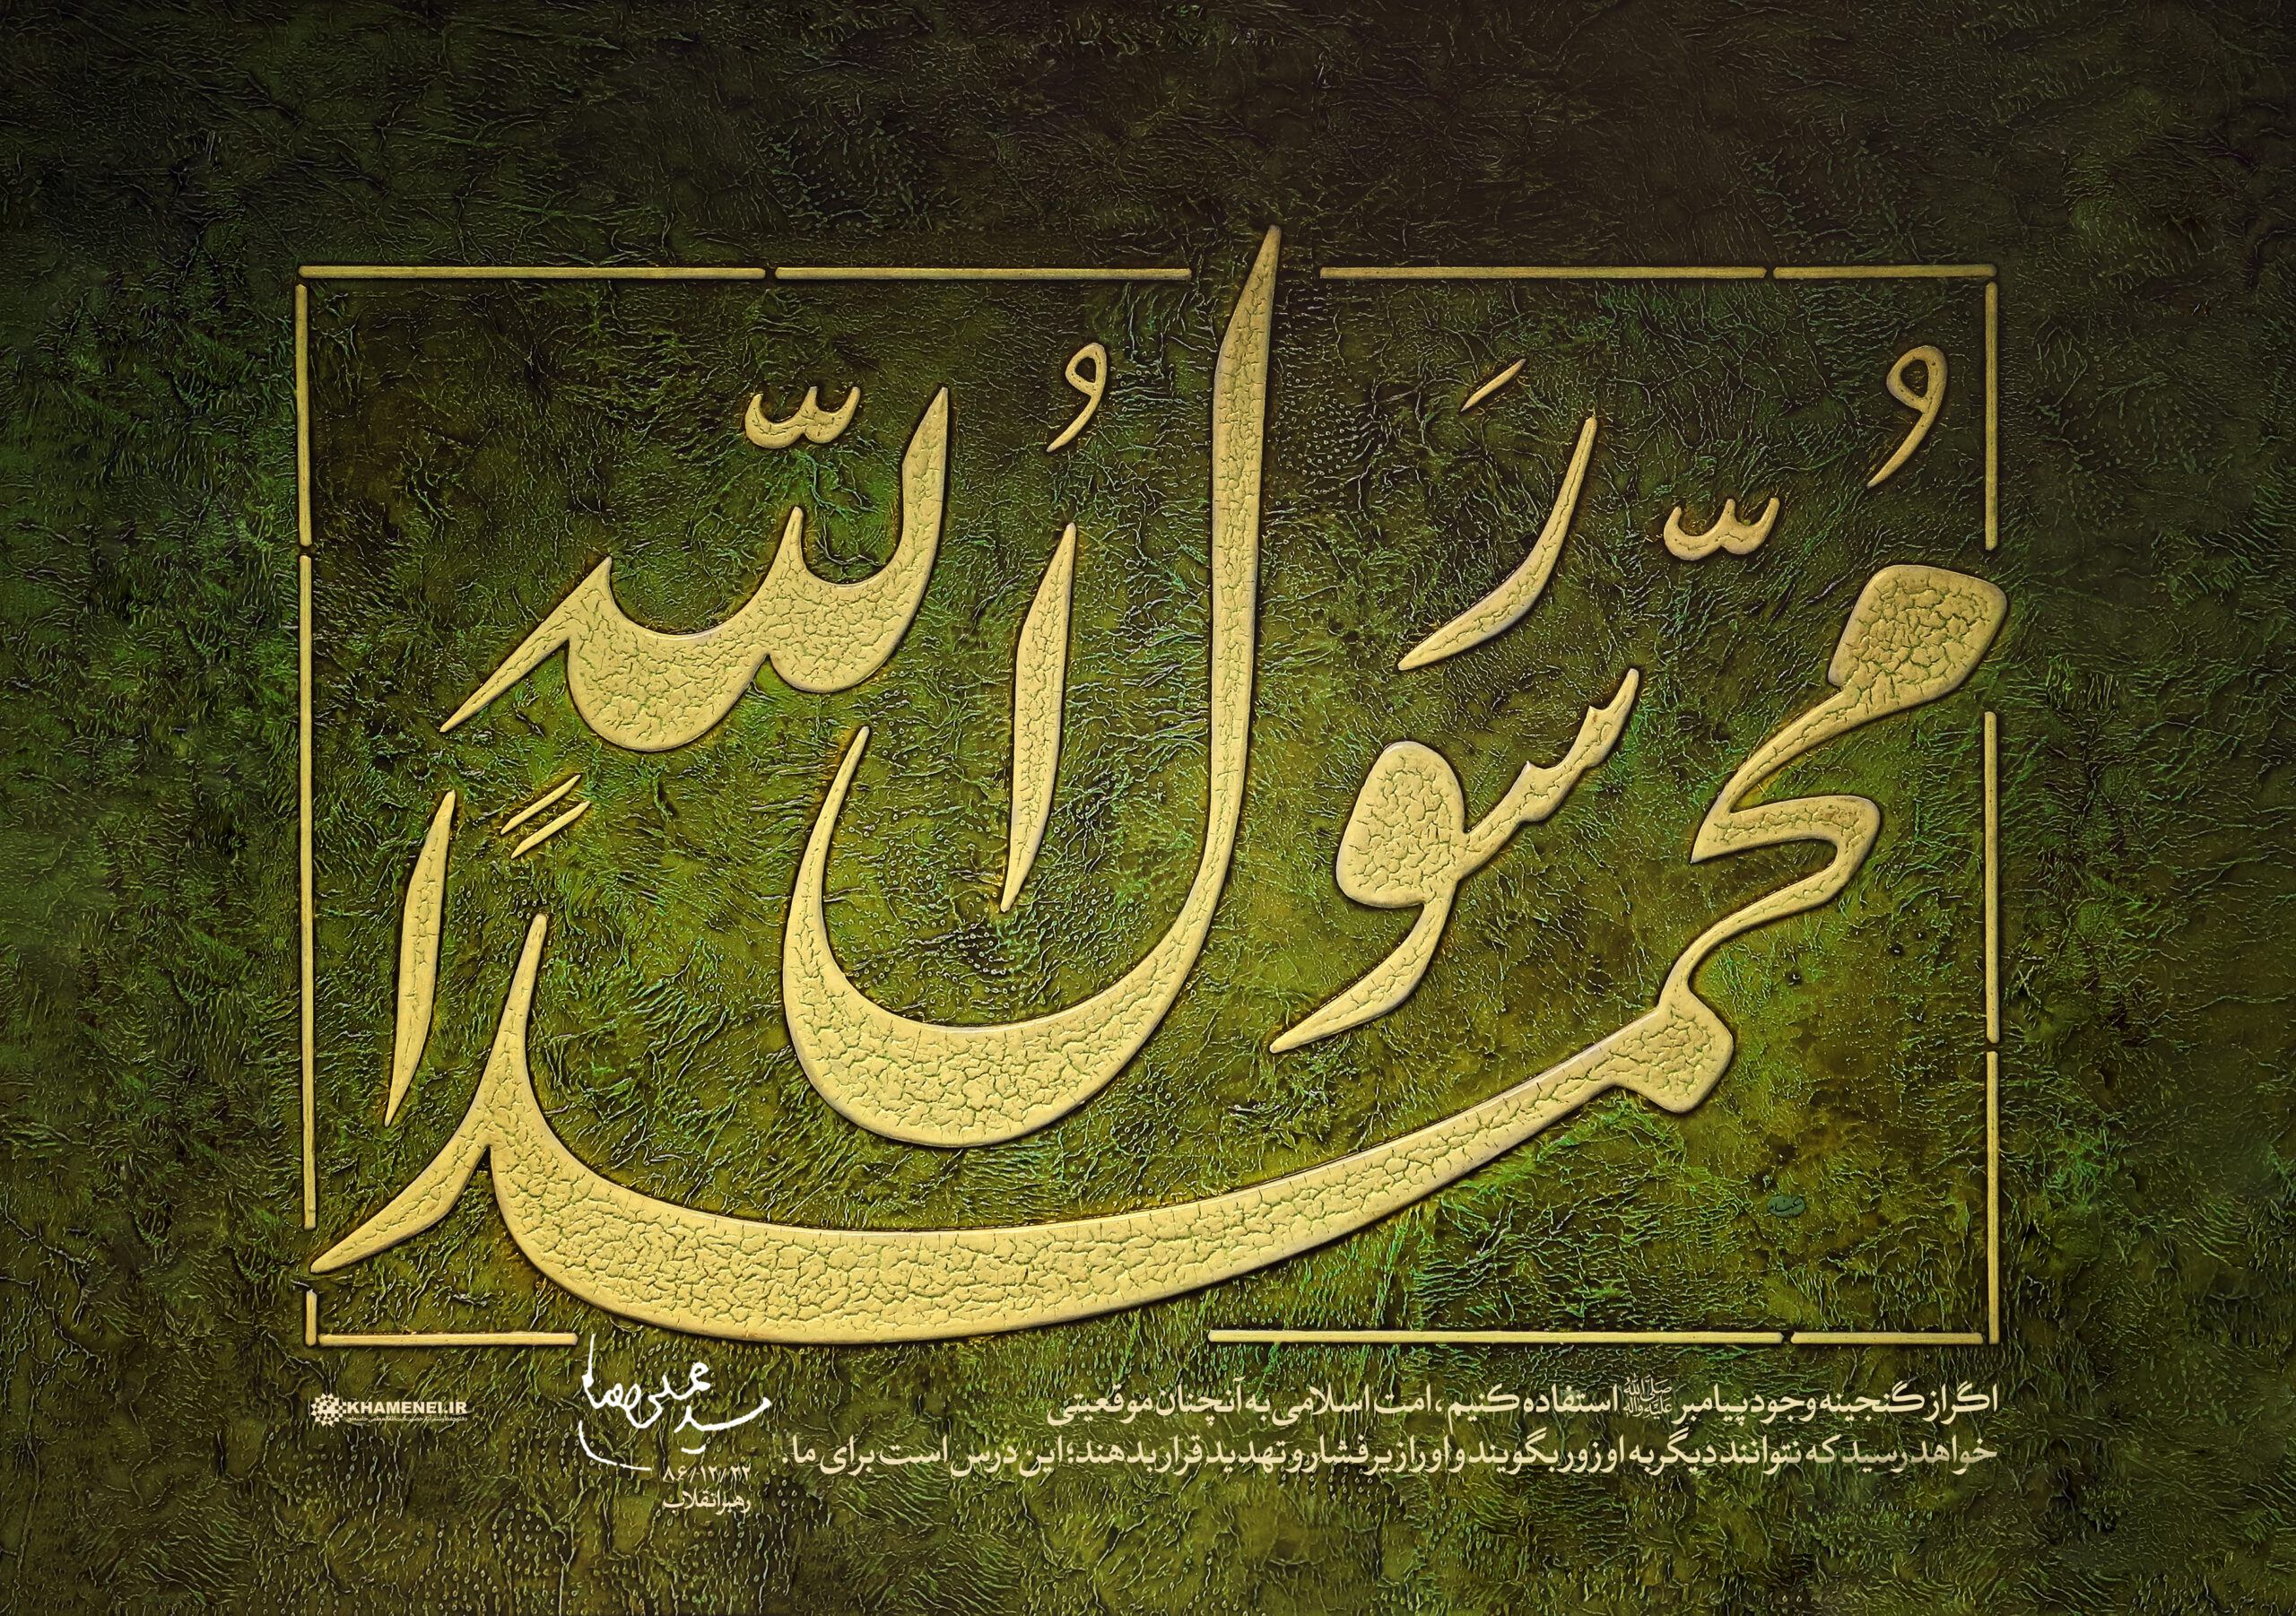 مُحمّدًا رَسولُ اللّه
اگر از گنجینه وجود پیامبر صلی‌الله‌علیه‌وآله استفاده کنیم، امت اسلامی به آنچنان موقعیتی
خواهد رسید که نتوانند دیگر به او زور بگویند و او را زیر فشار و تهدید قرار بدهند؛ این درس است برای ما.
۸۶/۱۲/۲۲
رهبر انقلاب
KHAMENEI.IR